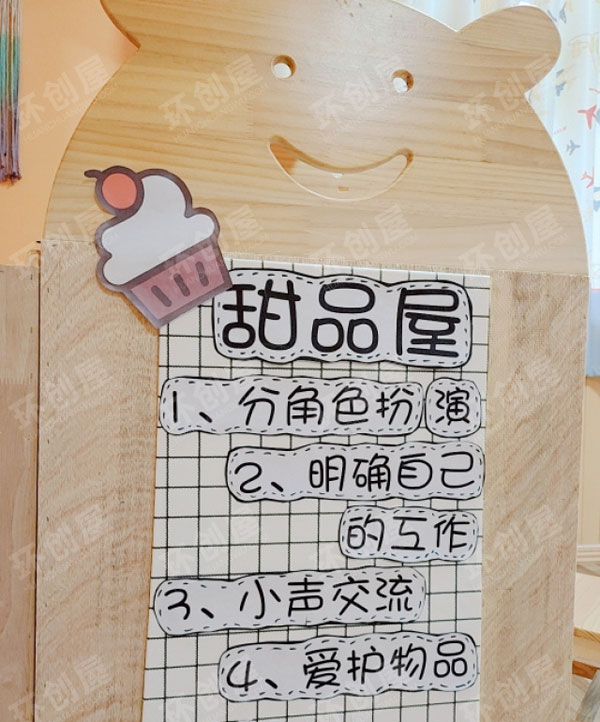 甜品屋
1、分角色扮演
2、明确自己
的工作
3、小声交流
4、爱护物品
环创屋